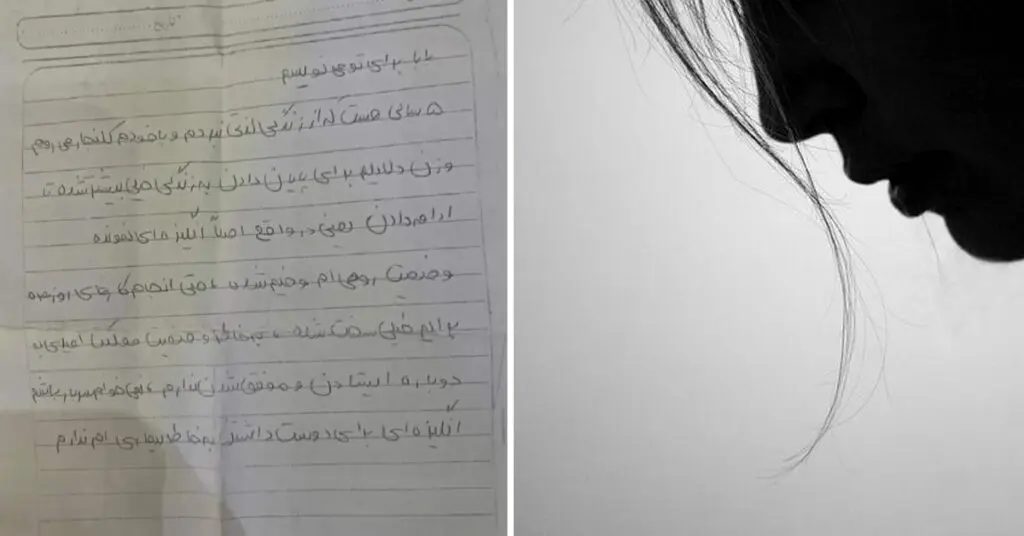 تاریخ:
بابا برای تو می نویسم
۵ سالی هست که از زندگی لذتی نبردم و با خودم کلنجار می روم
وزن دلایلم برای پایان دادن به زندگی خیلی بیشتر شده تا
ادامه دادن یعنی در واقع اصلاً انگیزه ای نمونده
وضعیت روحی ام وخیم شده ، حتی انجام کارهای روزمره
برایم خیلی سخت شده ، به خاطر وضعیت مملکت امیدی به
دوباره ایستادن و موفق شدن ندارم ، نمی خوام سربار باشم
انگیزه ای برای دوست داشتن به خاطر بیماری ام ندارم